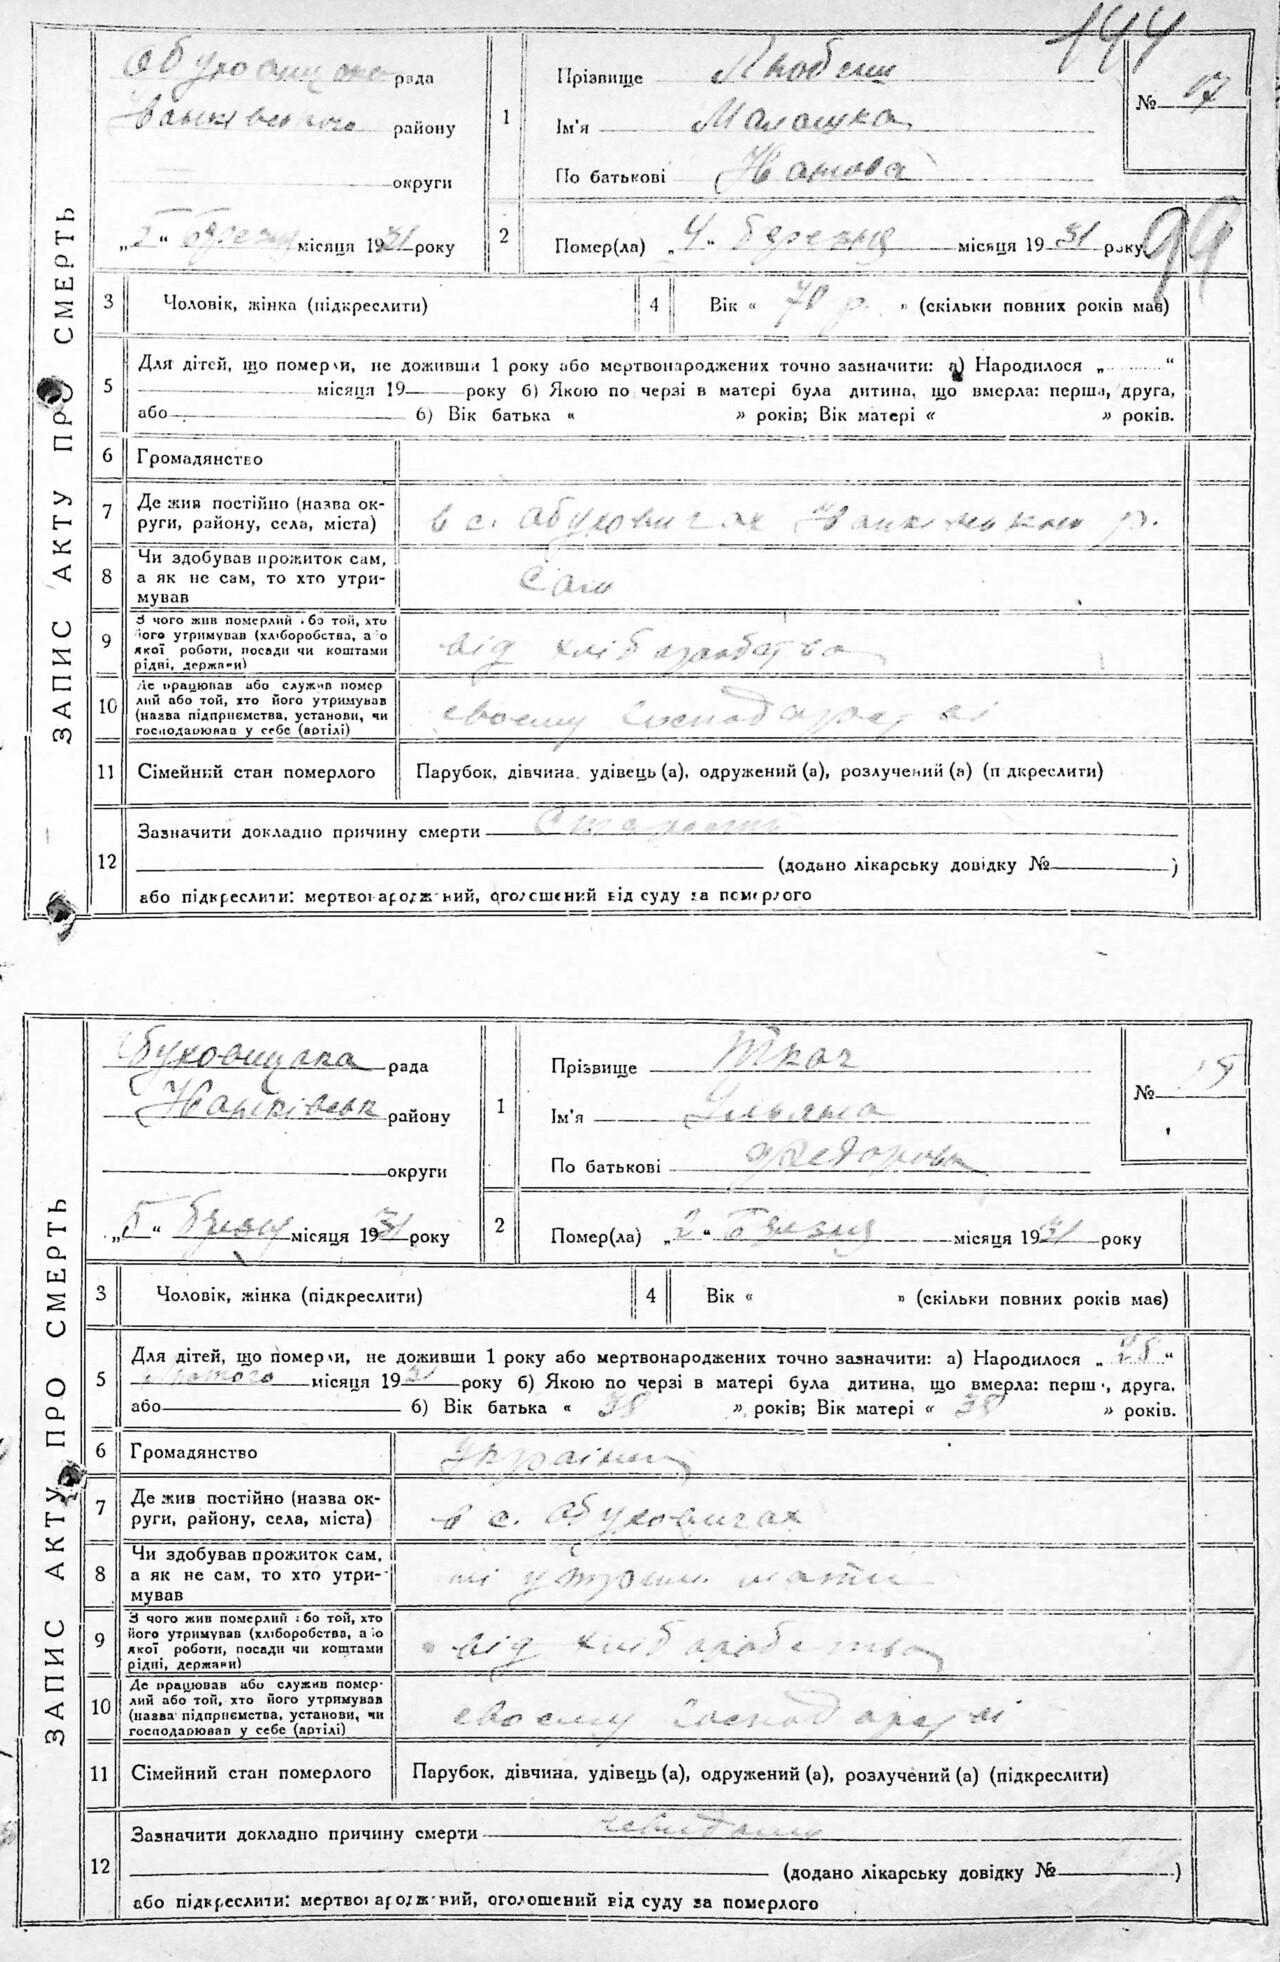 144
ЗАПИС АКТУ ПРО СМЕРТЬ
рада
району
округи
„5“ березня місяця 1931 року
1
Прізвище
Ім'я Малашка
По батькові
№ 17
2
Помер(ла) „4“ березня місяця 1931 року
99
3
Чоловік, жінка (підкреслити)
4
Вік « 70 р. » (скільки повних років має)
5
Для дітей, що померли, не доживши 1 року або мертвонароджених точно зазначити: а) Народилося „ “
місяця 19 року б) Якою по черзі в матері була дитина, що вмерла: перша, друга,
або б) Вік батька « » років; Вік матері « » років.
6
Громадянство
7
Де жив постійно (назва ок-
руги, району, села, міста)
в с. Обуховичах р.
8
Чи здобував прожиток сам,
а як не сам, то хто утри-
мував
Сам
9
З чого жив померлий або той, хто
його утримував (хліборобства, або
якої роботи, посади чи коштами
рідні, держави)
від хліборобства
10
Де працював або служив помер
лий або той, хто його утримував
(назва підприємства, установи, чи
господарював у себе (артілі)
своему господарстві
11
Сімейний стан померлого
Парубок, дівчина, удівець (а), одружений (а), розлучений (а) (підкреслити)
12
Зазначити докладно причину смерти
(додано лікарську довідку № )
або підкреслити: мертвонароджений, оголошений від суду за померлого
ЗАПИС АКТУ ПРО СМЕРТЬ
рада
району
округи
„5“ березня місяця 1931 року
1
Прізвище Ткач
Ім'я Ульяна
По батькові Федорова
№
2
Помер(ла) „2“ березня місяця 1931 року
3
Чоловік, жінка (підкреслити)
4
Вік « » (скільки повних років має)
5
Для дітей, що померли, не доживши 1 року або мертвонароджених точно зазначити: а) Народилося „ 28 “
лютого місяця 1931 року б) Якою по черзі в матері була дитина, що вмерла: перша, друга,
або б) Вік батька « 38 » років; Вік матері « 38 » років.
6
Громадянство
7
Де жив постійно (назва ок-
руги, району, села, міста)
в с. Обуховичах
8
Чи здобував прожиток сам,
а як не сам, то хто утри-
мував
ні утрим. мати
9
З чого жив померлий або той, хто
його утримував (хліборобства, або
якої роботи, посади чи коштами
рідні, держави)
від хліборобства
10
Де працював або служив помер-
лий або той, хто його утримував
(назва підприємства, установи, чи
господарював у себе (артілі)
своему господарстві
11
Сімейний стан померлого
Парубок, дівчина, удівець (а), одружений (а), розлучений (а) (підкреслити)
12
Зазначити докладно причину смерти
(додано лікарську довідку № )
або підкреслити: мертвонароджений, оголошений від суду за померлого